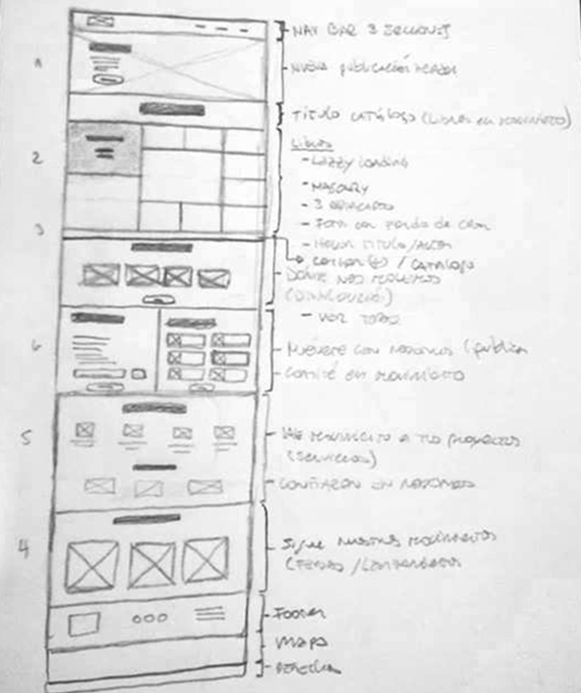 NAV BAR 3 SECCIONES
1
NUEVA PUBLICACIÓN HEADER
TÍTULO CATÁLOGO (LIBROS EN MOVIMIENTO)
2
LIBROS
- LAZZY LOADING
- MASONRY
- 3 DESTACADOS
- FOTO CON FONDO DE COLOR
- HOVER TITULO/AUTOR
3
CATALOGO
DONDE NOS MOVEMOS
(DISTRIBUCIÓN)
- VER TODO
6
MUÉVETE CON NOSOTROS (PUBLICA
COMITÉ EN MOVIMIENTO
5
MOVIMIENTO A TUS PROYECTOS
(SERVICIOS)
CONFIARON EN NOSOTROS
4
SIGUE NUESTROS MOVIMIENTOS
FOOTER
MAPA